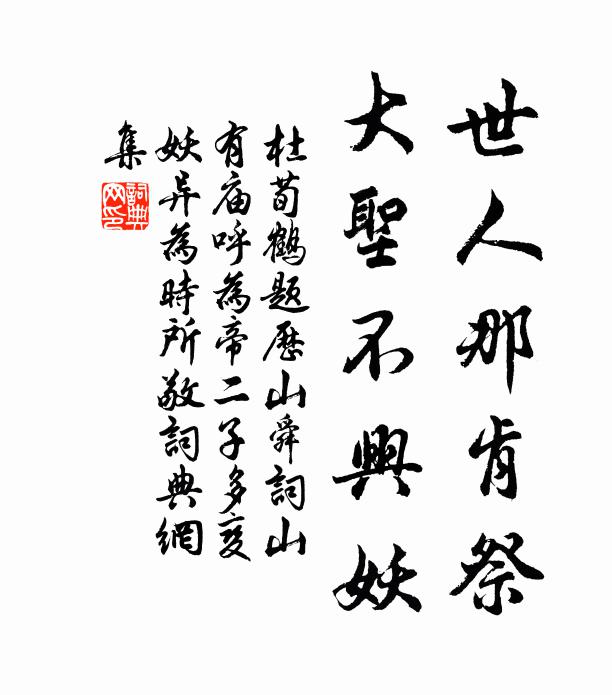 世人那肯祭
大聖不興妖
杜荀鶴題歷山舜詞山
有庙呼為帝二子多变
妖异為時所敬詞典網
集
詞典
网印